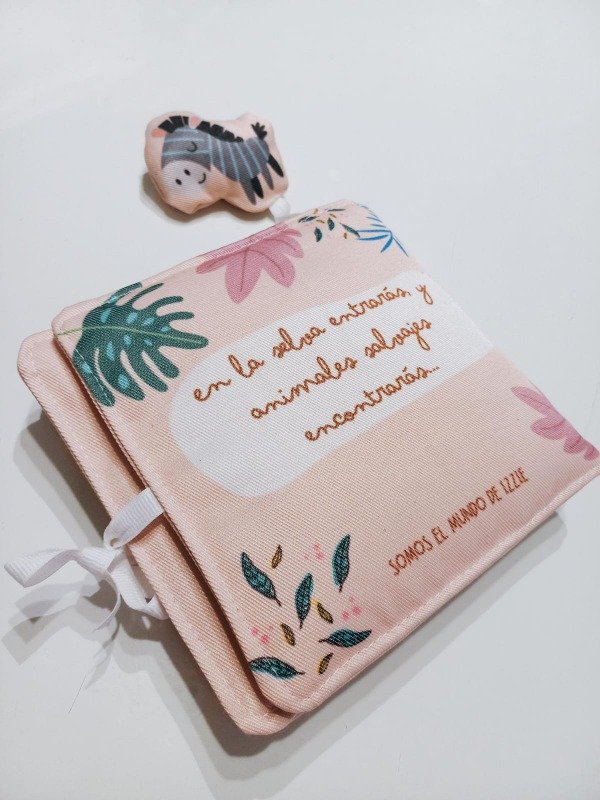 en la selva entrarás, y
animales salvajes
encontrarás...
SOMOS EL MUNDO DE IZZIE